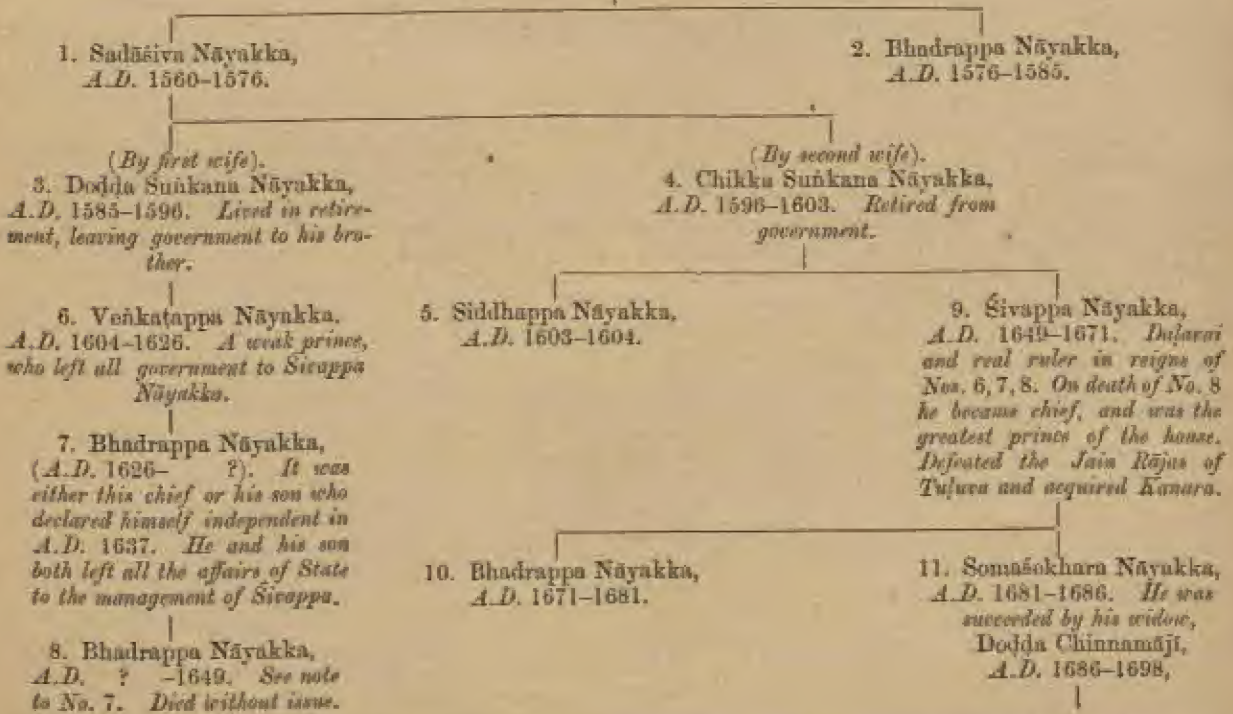 1. Sadāśiva Nāyakka,
A.D. 1560–1576.
2. Bhadrappa Nāyakka,
A.D. 1576–1585.
(By first wife).
3. Doḍḍa Suṅkana Nāyakka,
A.D. 1585–1596. Lived in retire-
ment, leaving government to his bro-
ther.
(By second wife).
4. Chikka Suṅkana Nāyakka,
A.D. 1596–1603. Retired from
government.
6. Veṅkaṭappa Nāyakka.
A.D. 1604–1626. A weak prince,
who left all government to Śivappa
Nāyakka.
5. Siddhappa Nāyakka,
A.D. 1603–1604.
9. Śivappa Nāyakka,
A.D. 1649–1671. Daḷavai
and real ruler in reigns of
Nos. 6, 7, 8. On death of No. 8
he became chief, and was the
greatest prince of the house.
Defeated the Jain Rājas of
Tuḷuva and acquired Kanara.
7. Bhadrappa Nāyakka,
(A.D. 1626– ?). It was
either this chief or his son who
declared himself independent in
A.D. 1637. He and his son
both left all the affairs of State
to the management of Śivappa.
10. Bhadrappa Nāyakka,
A.D. 1671–1681.
11. Somaśekhara Nāyakka,
A.D. 1681–1686. He was
succeeded by his widow,
Doḍḍa Chinnamājī,
A.D. 1686–1698,
8. Bhadrappa Nāyakka,
A.D. ? –1649. See note
to No. 7. Died without issue.